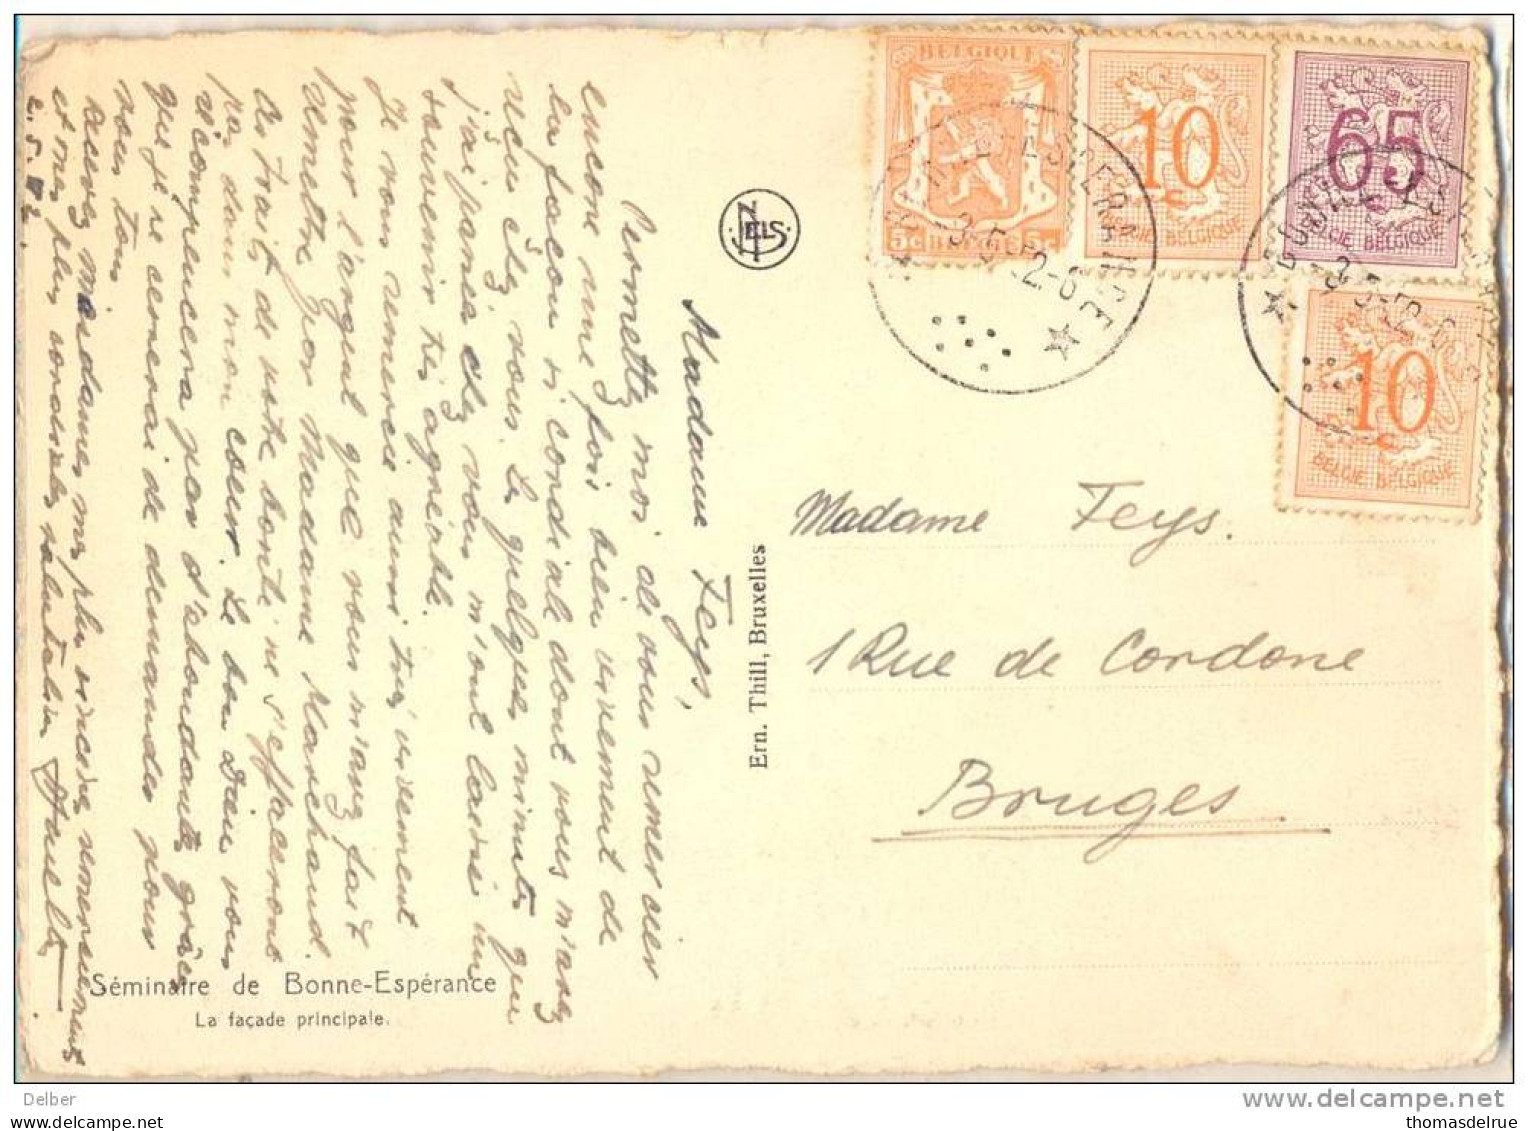 Madame Feys,
Permettez moi de vous remercier
encore une fois bien vivement de
la façon si cordiale dont vous m'avez
reçu chez vous. Les quelques minutes que
j'ai passées chez vous m'ont laissé un
souvenir très agréable.
Je vous remercie aussi très vivement
pour l'argent que vous m'avez fait
remettre par Madame Marechaud.
Ces traits de votre bonté ne s'effaceront
pas dans mon cœur. Le bon Dieu vous
récompensera par d'abondantes grâces
que je ne cesserai de demander pour
vous tous.
Recevez mesdames mes plus sincères remerciements
et mes plus cordiales salutations
2.5.52.
NELS
Ern. Thill, Bruxelles
Séminaire de Bonne-Espérance
La façade principale.
BELGIQUE
5c BELGIE 5c
10
BELGIE BELGIQUE
65
BELGIE BELGIQUE
10
BELGIE BELGIQUE
BONNE ESPERANCE
-3.5.52-6
BONNE ESPERANCE
Madame Feys.
1 Rue de Cordone
Bruges
Delber
www.delcampe.net
Uploaded for thomasdelrue
thomasdelrue